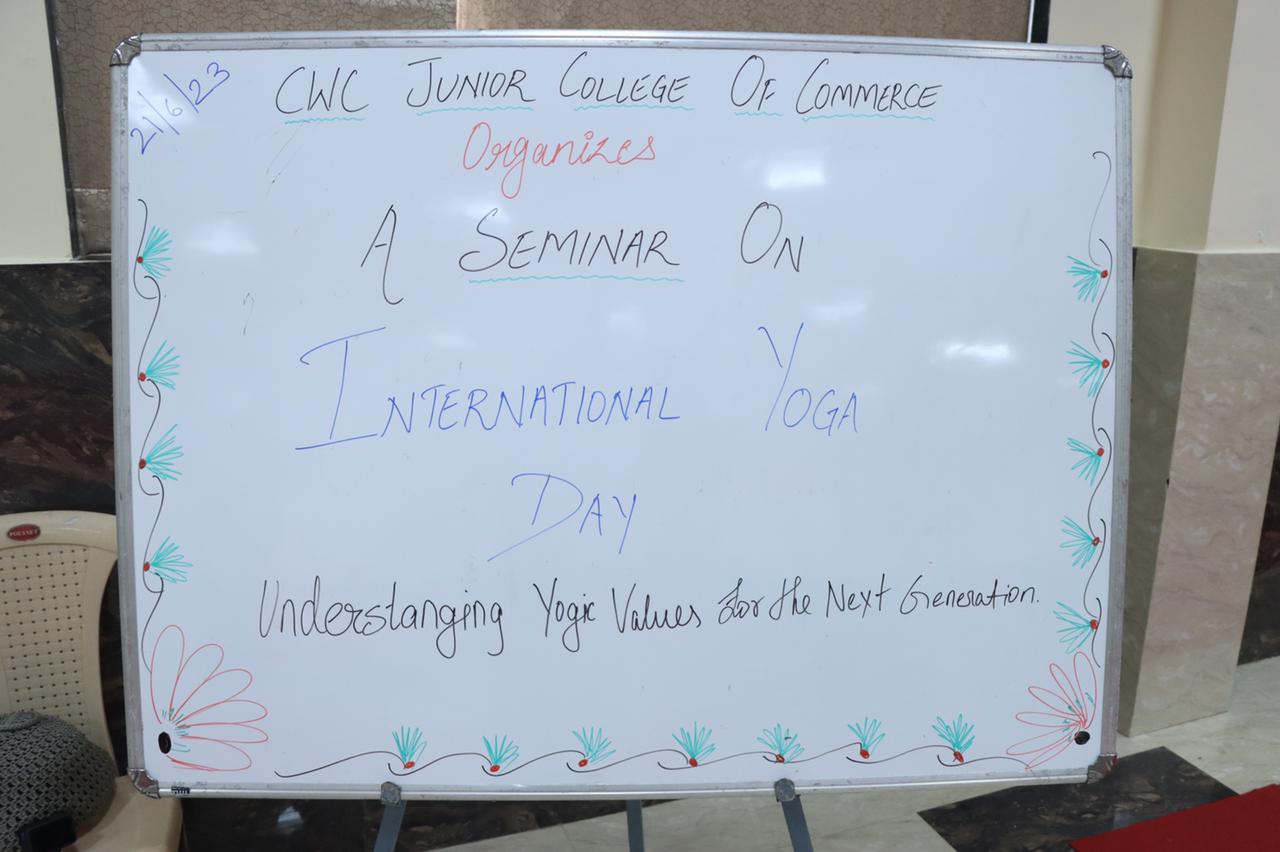 21/6/23
CWC JUNIOR COLLEGE OF COMMERCE
Organizes
A SEMINAR ON
INTERNATIONAL YOGA
DAY
Understanging Yogic Values for the Next Generation.